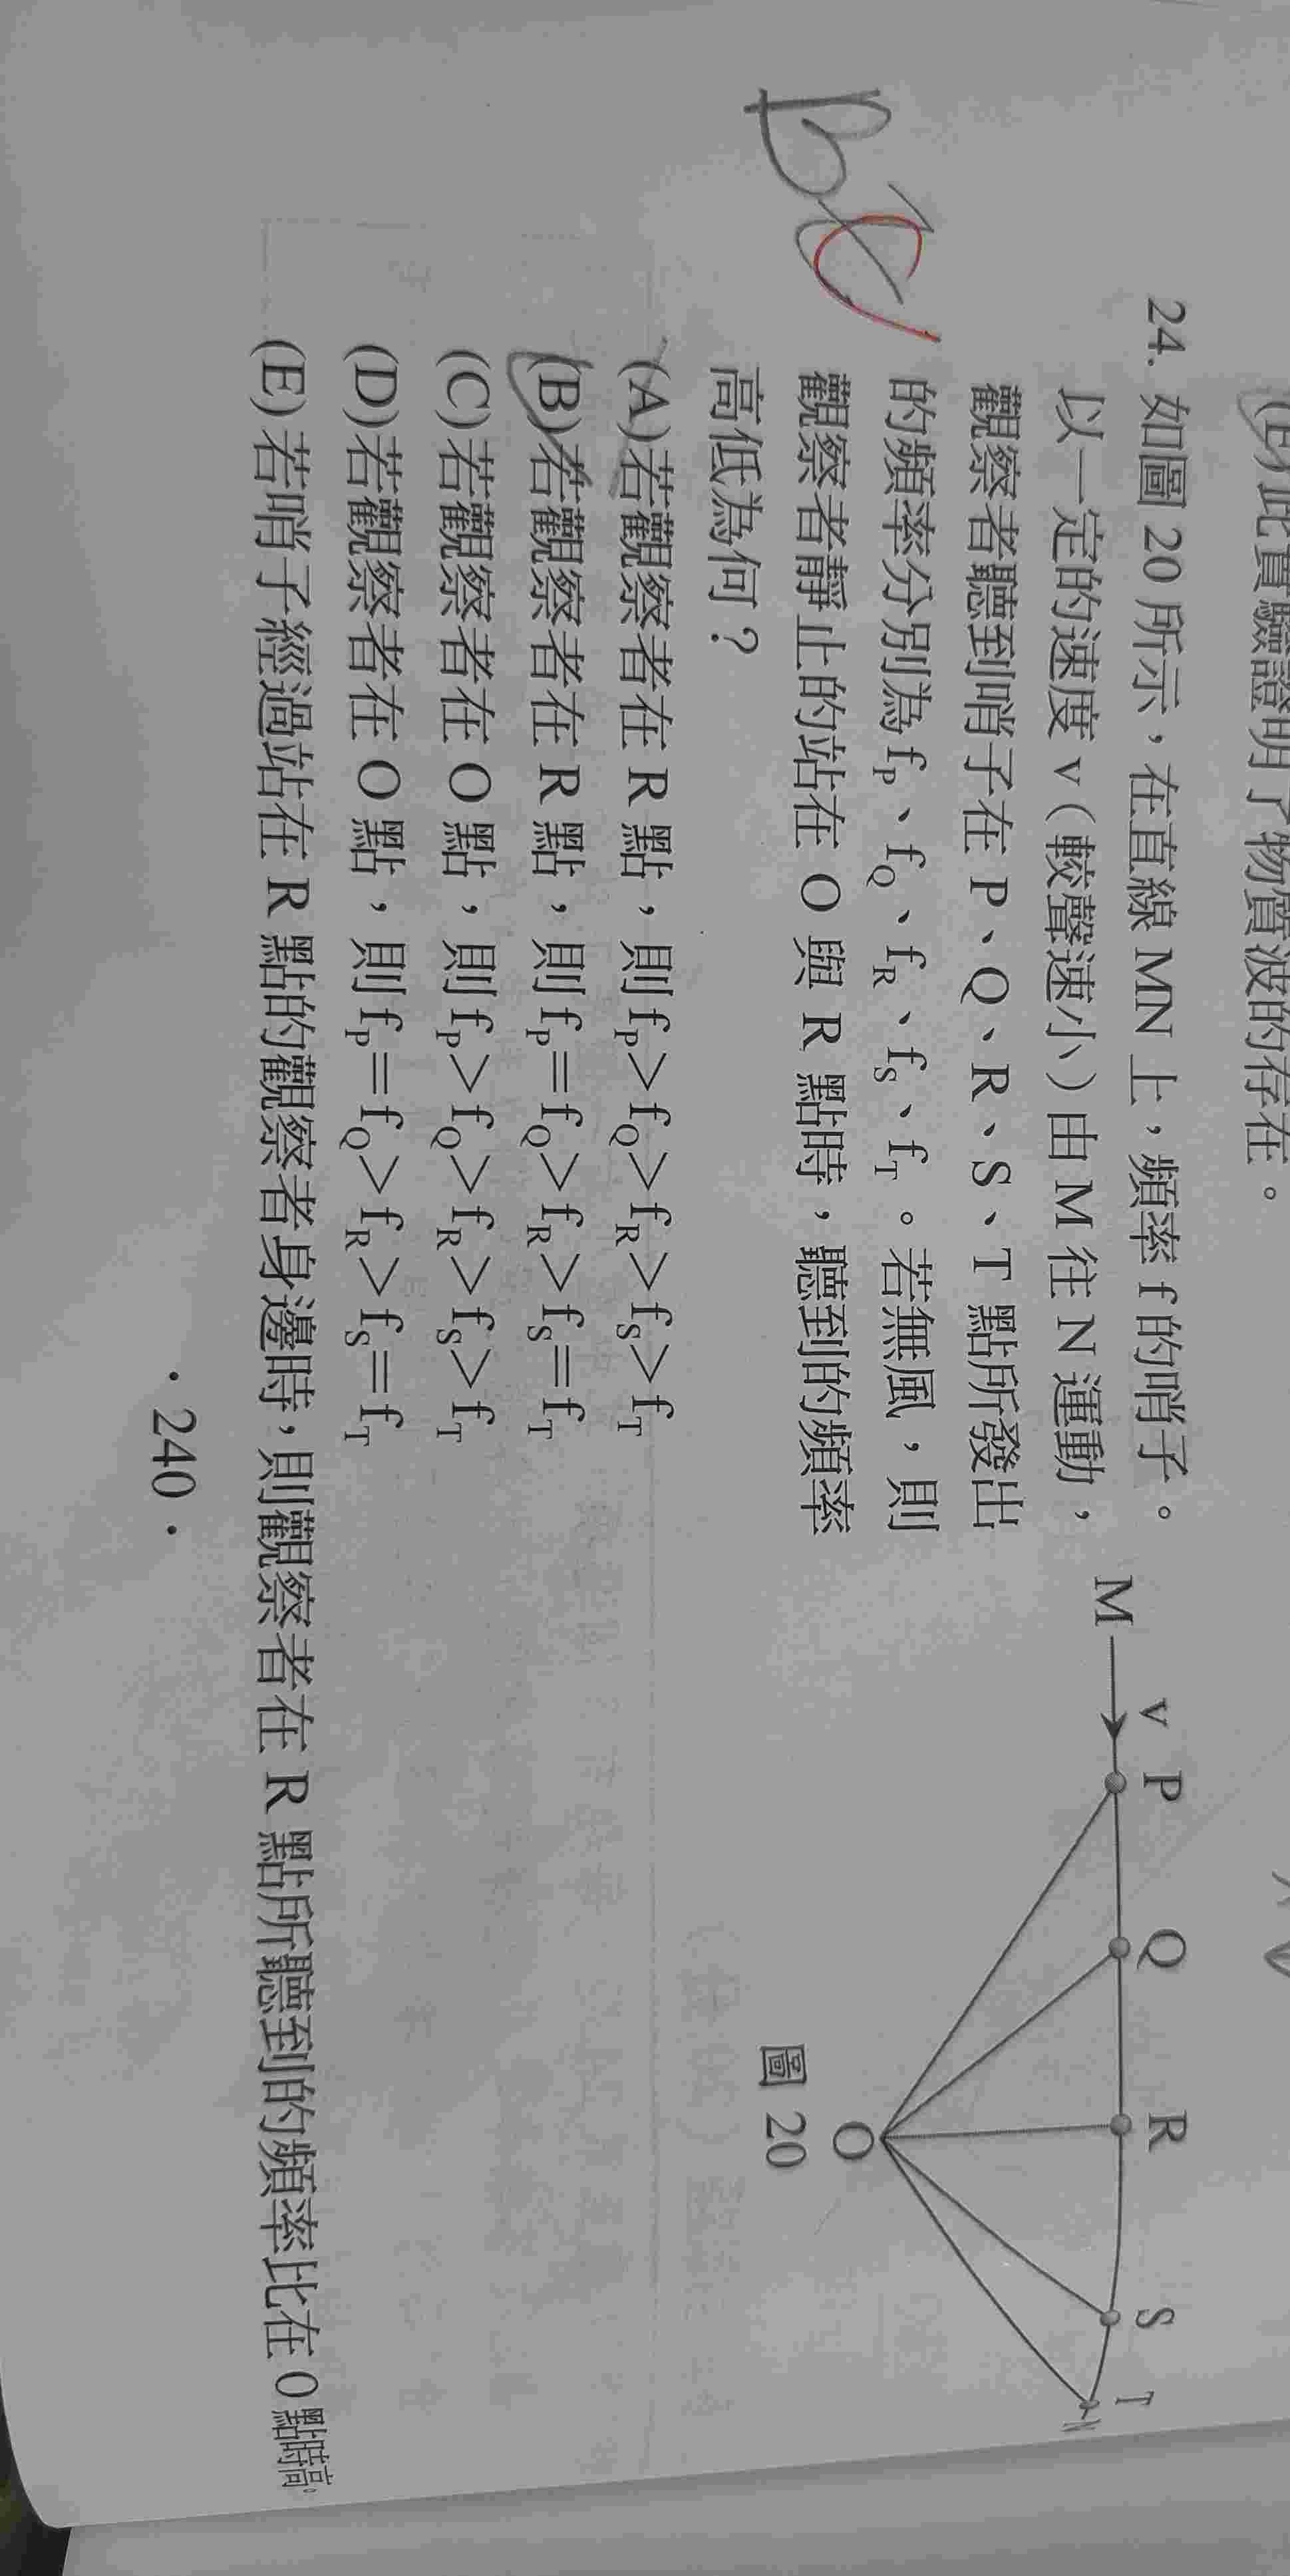 (E)此實驗證明了物質波的存在。
BC
24. 如圖 20 所示，在直線 MN 上，頻率 f 的哨子。
以一定的速度 v（較聲速小）由 M 往 N 運動，
觀察者聽到哨子在 P、Q、R、S、T 點所發出
的頻率分別為 fP、fQ、fR、fS、fT。若無風，則
觀察者靜止的站在 O 與 R 點時，聽到的頻率
高低為何？
M v P Q R S T
N
O
圖 20
(A)若觀察者在 R 點，則 fP＞fQ＞fR＞fS＞fT
(B)若觀察者在 R 點，則 fP＝fQ＞fR＞fS＝fT
(C)若觀察者在 O 點，則 fP＞fQ＞fR＞fS＞fT
(D)若觀察者在 O 點，則 fP＝fQ＞fR＞fS＝fT
(E)若哨子經過站在 R 點的觀察者身邊時，則觀察者在 R 點所聽到的頻率比在 O 點時高。
· 240 ·